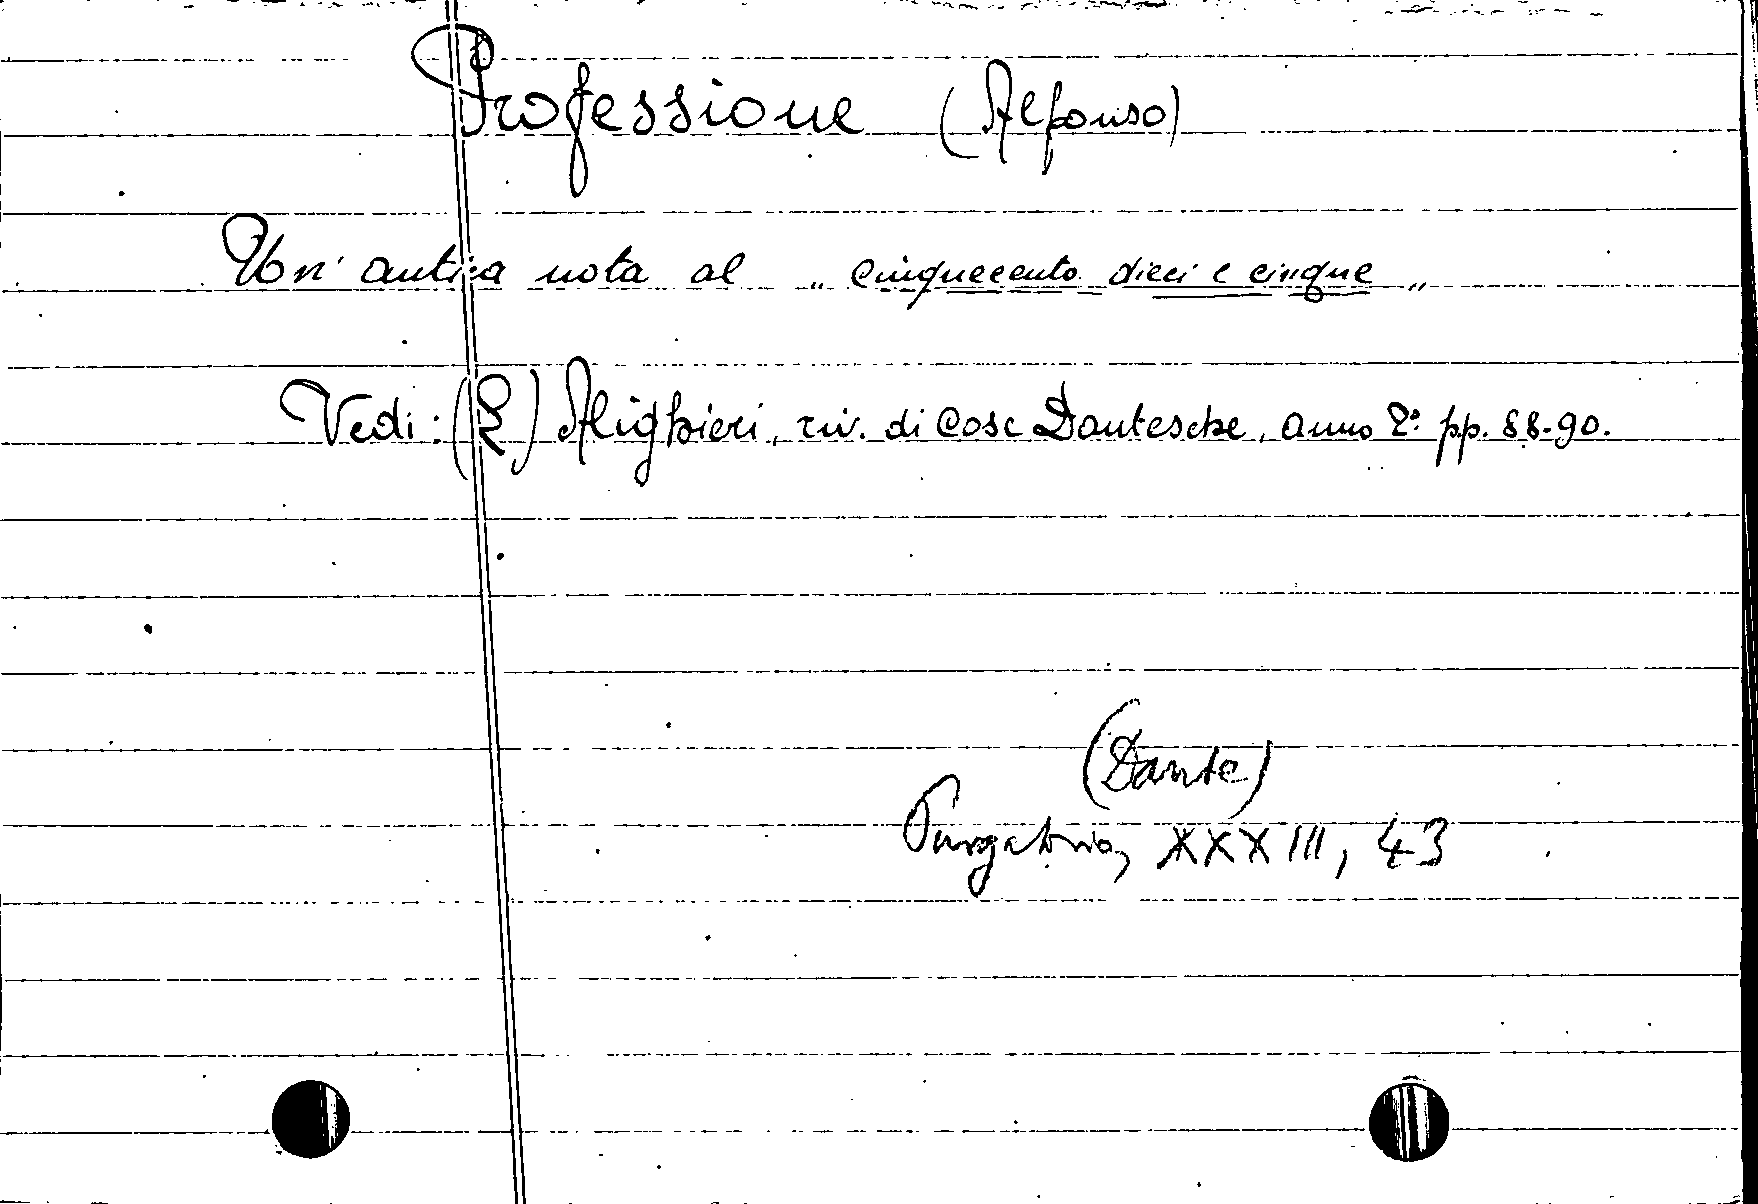 Professione (Alfonso)
Un' antica nota al „ cinquecento dieci e cinque „
Vedi: (L') Alighieri, riv. di cose Dantesche, anno 2° pp. 88-90.
(Dante)
Purgatorio, XXXIII, 43